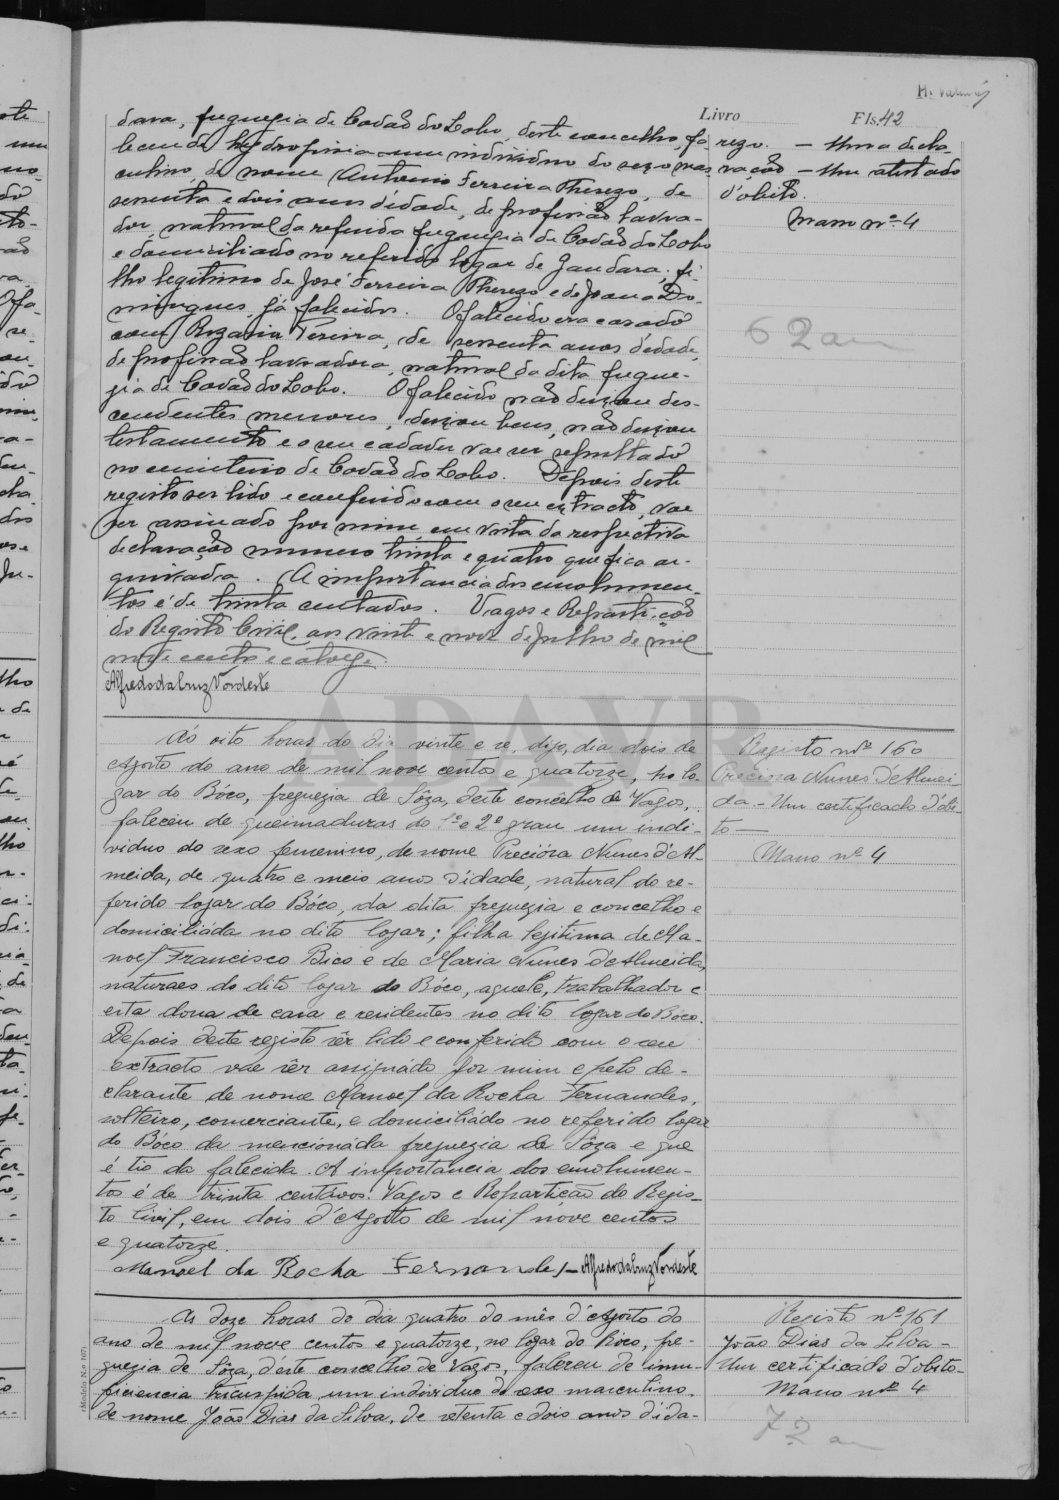 H. Valen
Livro Fls. 42
dara, freguezia de Covão do Lobo, deste concelho, fa-
leceu de hydropisia um individuo do sexo mas-
culino, de nome Antonio Ferreira Therezo, de
sessenta e dois anos d'idade, de profissão lavra-
dor, natural da referida freguezia de Covão do Lobo
e domiciliado no referido logar de Gandara, fi-
lho legitimo de José Ferreira Therezo e de Joana Do-
mingues, já falecidos. O falecido era casado
com Rozaria Pereira, de sessenta anos d'idade,
de profissão lavradora, natural da dita fregue-
zia de Covão do Lobo. O falecido não deixou des-
cendentes menores, deixou bens, não deixou
testamento e o seu cadaver vae ser sepultado
no cemiterio de Covão do Lobo. Depois deste
registo ser lido e conferido com o seu extracto, vae
ser assinado por mim, em vista da respectiva
declaração numero trinta e quatro que fica ar-
quivada. A importancia dos emolumen-
tos é de trinta centavos. Vagos e Repartição
do Registo Civil, aos vinte e nove de Julho de mil
nove centos e catorze.
Alfredo da Cruz Vordeste
rezo. — Uma decla-
ração — Um atestado
d'obito.
Maço nº 4
62 an
Ás oito horas do dia vinte e se, digo, dia dois de
Agosto do ano de mil nove centos e quatorze, no lo-
gar do Bóco, freguezia de Sôza, deste concêlho de Vagos,
faleceu de queimaduras do 1º e 2º grau um indi-
viduo do sexo femenino, de nome Preciósa Nunes d'Al-
meida, de quatro e meio anos d'idade, natural do re-
ferido logar do Bóco, da dita freguezia e concelho e
domiciliáda no dito logar; filha legitima de Ma-
noel Francisco Bico e de Maria Nunes d'Almeida,
naturaes do dito logar do Bóco, aquele, trabalhador e
esta dona de casa e residentes no dito logar do Bóco.
Depois deste registo sêr lido e conferido com o seu
extracto vae sêr assignádo por mim e pelo de-
clarante de nome Manoel da Rocha Fernandes,
solteiro, comerciante, e domiciliádo no referido logar
do Bóco da mencionáda freguezia de Sôza e que
é tio da falecida. A importancia dos emolumen-
tos é de trinta centavos. Vagos e Repartição do Regis-
to Civil, em dois d'Agosto de mil nove centos
e quatorze.
Manoel da Rocha Fernandes — Alfredo da Cruz Vordeste
Registo nº 160
Preciosa Nunes d'Almei-
da — Um certificado d'óbi-
to —
Maço nº 4
Ás doze horas do dia quatro do mês d'Agosto do
ano de mil nove centos e quatorze, no logar do Bóco, fre-
guezia de Sôza, deste concelho de Vagos, faleceu de insu-
ficiencia tricuspida um individuo do sexo masculino,
de nome João Dias da Silva, de setenta e dois anos d'ida-
Registo nº 161
João Dias da Silva —
Um certificado d'obito —
Maço nº 4
72 an
(Modelo N.º 167)
ADAVR